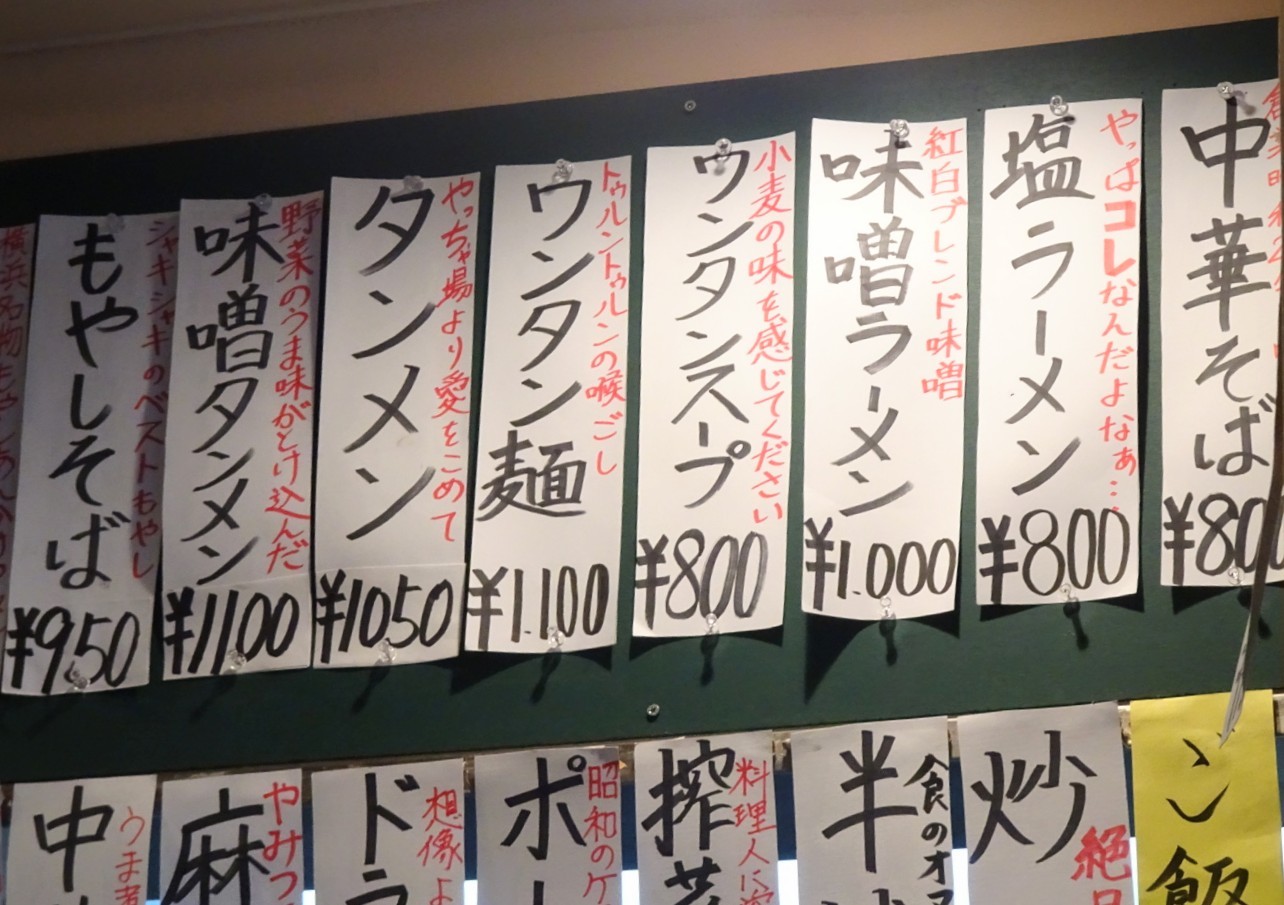 中華そば
¥800
やっぱコレなんだよなぁ…
塩ラーメン
¥800
紅白ブレンド味噌
味噌ラーメン
¥1.000
小麦の味を感じてください
ウンタンスープ
¥800
トゥルントゥルンの喉ごし
ウンタン麺
¥1.100
やっちゃ場より愛をこめて
タンメン
¥1050
野菜のうま味がとけ込んだ
味噌タンメン
¥1100
シャキシャキのベストもやし
もやしそば
¥950
横浜名物
ご飯
絶
炒
食のオ
半
料理人に
搾
昭和のケ
ポー
想像
ドラ
やみつ
麻
うま
中